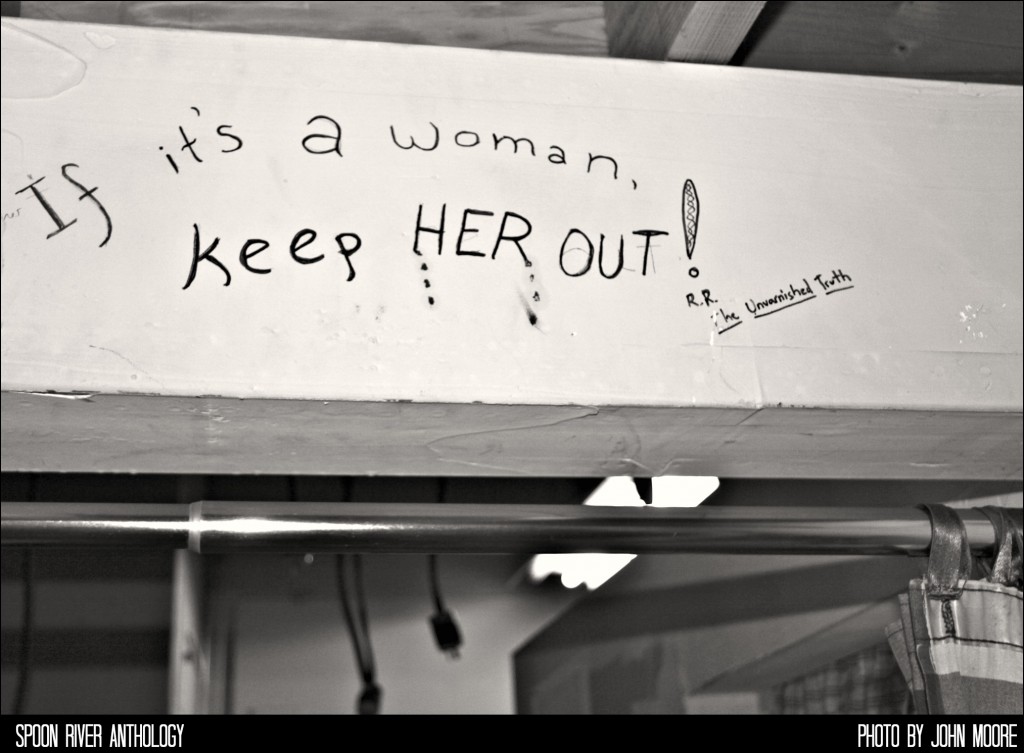 If it's a woman,
keep HER OUT!
R.R.
The Unvarnished Truth
SPOON RIVER ANTHOLOGY
PHOTO BY JOHN MOORE